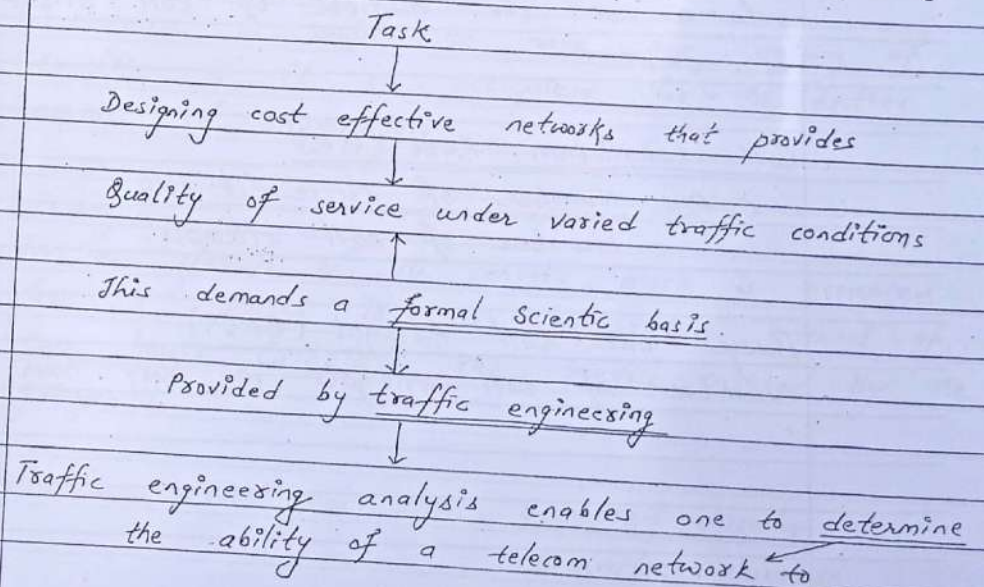 Task
Designing cost effective networks that provides
Quality of service under varied traffic conditions
This demands a formal scientic basis.
Provided by traffic engineering
Traffic engineering analysis enables one to determine
the ability of a telecom network to